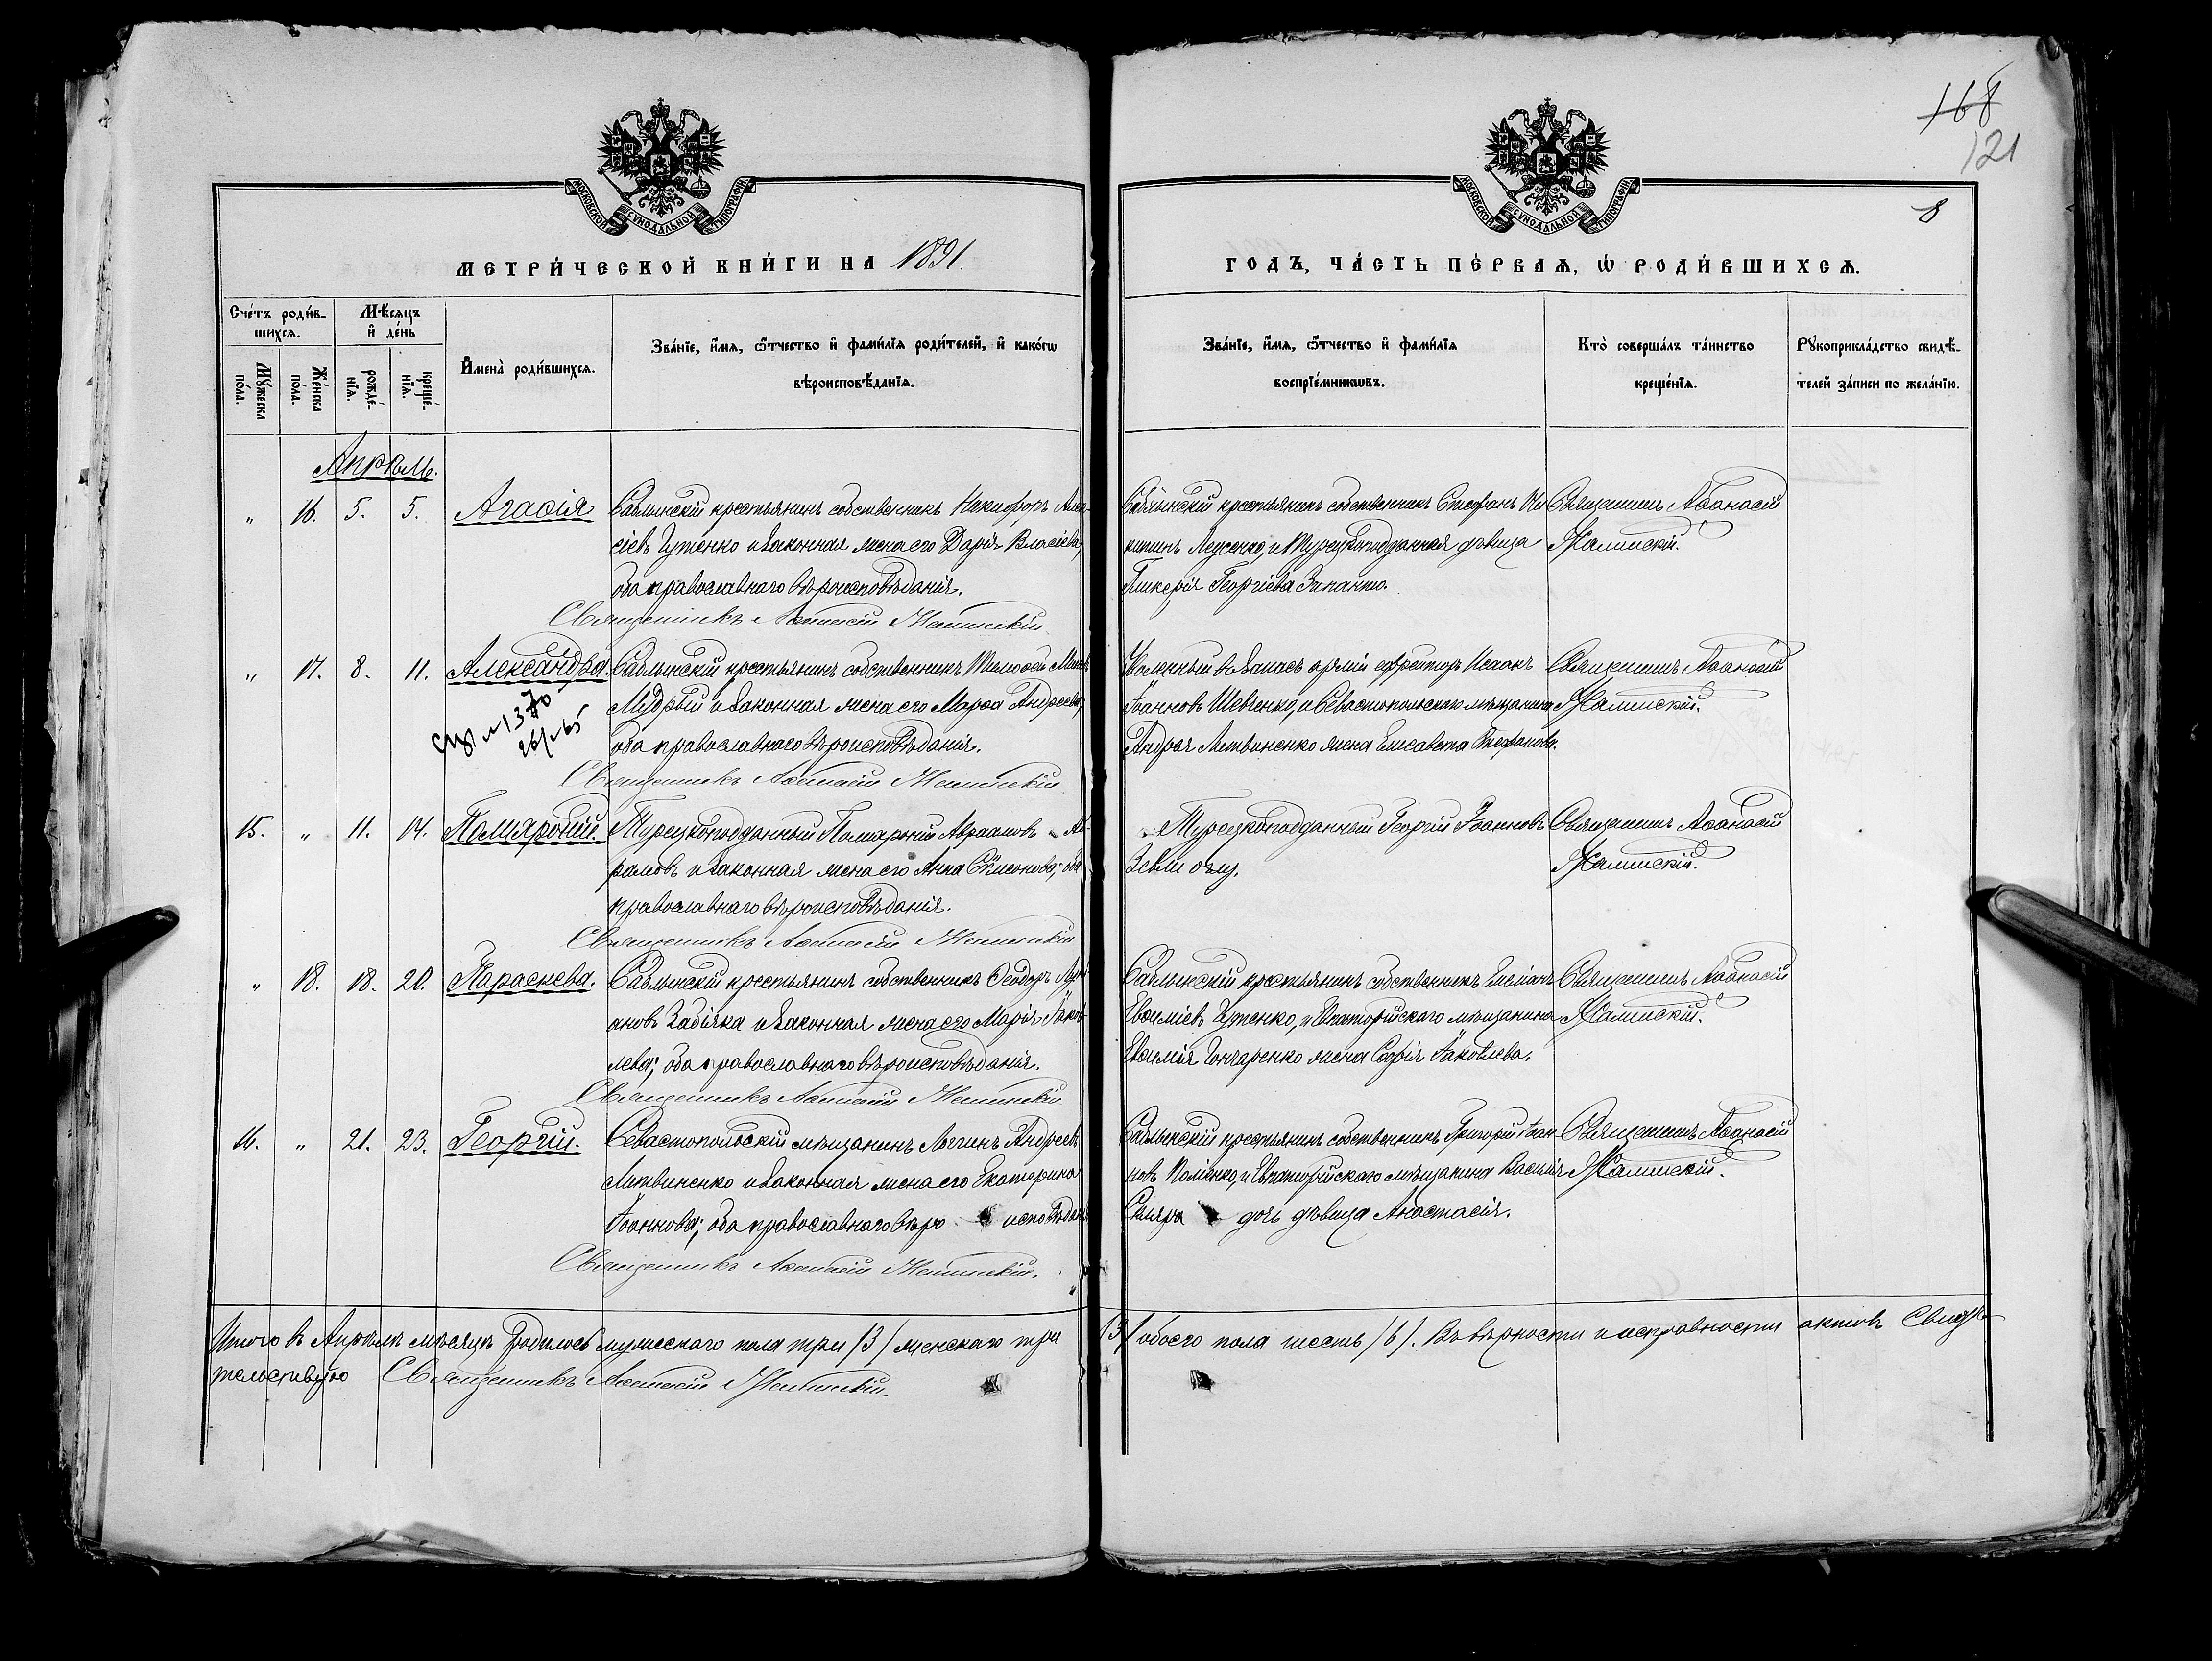 168
121
8
МОСКОВСКОЙ СѴНОДАЛЬНОЙ ТИПОГРАФІИ
МОСКОВСКОЙ СѴНОДАЛЬНОЙ ТИПОГРАФІИ
МЕТРИ́ЧЕСКОЙ КНИ́ГИ НА 1891.
ГОДЪ, ЧА́СТЬ ПЕ́РВАѦ, Ѡ РОДИ́ВШИХСѦ.
Сче́тъ роди́в-
шихсѧ.
Мꙋ́жеска по́ла.
Же́нска по́ла.
Мѣ́сѧцъ
и҆ де́нь
рожде́-
нїѧ.
креще́-
нїѧ.
И҆мена̀ роди́вшихсѧ.
Зва́нїе, и҆́мѧ, ѻ҆́тчество и҆ фами́лїѧ роди́телей, и҆ како́гѡ
вѣроисповѣ́данїѧ.
Зва́нїе, и҆́мѧ, ѻ҆́тчество и҆ фами́лїѧ
воспрїе́мникѡвъ.
Кто̀ соверша́лъ та́инство
креще́нїѧ.
Рꙋкоприкла́дство свидѣ́-
телей за́писи по жела́нїю.
Апрѣль.
" 16. 5. 5. Агафія Саблынскій крестьянинъ собственникъ Никифоръ Алек-
сіевъ Чутенко и законная жена его Дарія Власіева,
оба православнаго вѣроисповѣданія.
Священникъ Аѳанасій
Саблынскій крестьянинъ собственникъ Стефанъ Ни-
китинъ Леусенко, и Турецкоподданная дѣвица
Гликерія Георгіева
Священникъ Аѳанасій
" 17. 8. 11. Александра. Саблынскій крестьянинъ собственникъ Тимоѳей
Мудрый и законная жена его Марѳа Андреева,
оба православнаго вѣроисповѣданія.
Священникъ Аѳанасій
Уволенный въ запасъ арміи ефрейторъ Исаакъ
Іоанновъ Шевченко, и Севастопольскаго мѣщанина
Андрея Литвиненко жена Елисавета Стефанова.
Священникъ Аѳанасій
15. " 11. 14. Турецкоподданный Авраамовъ
рамовъ и законная жена его Анна Сѵмеонова; оба
православнаго вѣроисповѣданія.
Священникъ Аѳанасій
Турецкоподданный Георгій Іоанновъ
оглу.
Священникъ Аѳанасій
" 18. 18. 20. Параскева. Саблынскій крестьянинъ собственникъ Ѳеодоръ
ановъ Забіяка и законная жена его Марія Іаков-
лева; оба православнаго вѣроисповѣданія.
Священникъ Аѳанасій
Саблынскій крестьянинъ собственникъ Емеліанъ
Евѳиміевъ Чутенко, и Евпаторійскаго мѣщанина
Евѳимія Гончаренко жена Софія Іаковлева.
Священникъ Аѳанасій
16. " 21. 23. Георгій. Севастопольскій мѣщанинъ Логинъ Андреевъ
Литвиненко и законная жена его Екатерина
Іоаннова; оба православнаго вѣро исповѣдан
Священникъ Аѳанасій
Саблынскій крестьянинъ собственникъ Григорій Іоан-
новъ и Евпаторійскаго мѣщанина Василія
дочь дѣвица Анастасія.
Священникъ Аѳанасій
Итого въ Апрѣлѣ мѣсяцѣ родилось мужескаго пола три /3/ женскаго три /3/ обоего пола шесть /6/. Въ вѣрности и исправности актовъ свидѣ-
тельствую Священникъ Аѳанасій